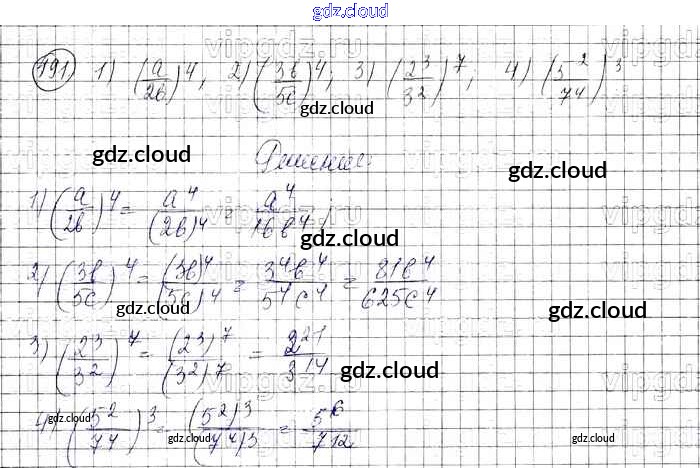 gdz.cloud
191) 1) (a/2b)^4, 2) (3b/5c)^4; 3) (2^3/3^2)^7; 4) (5^2/7^4)^3
gdz.cloud
gdz.cloud gdz.cloud
Решение:
1) (a/2b)^4 = a^4/(2b)^4 = a^4/16b^4;
gdz.cloud
2) (3b/5c)^4 = (3b)^4/(5c)^4 = 3^4b^4/5^4c^4 = 81b^4/625c^4
gdz.cloud gdz.cloud
3) (2^3/3^2)^7 = (2^3)^7/(3^2)^7 = 2^21/3^14
gdz.cloud
4) (5^2/7^4)^3 = (5^2)^3/(7^4)^3 = 5^6/7^12
gdz.cloud gdz.cloud gdz.cloud gdz.cloud